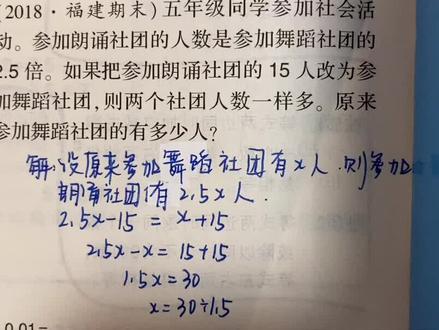 (2018·福建期末)五年级同学参加社会活
动。参加朗诵社团的人数是参加舞蹈社团的
2.5 倍。如果把参加朗诵社团的 15 人改为参
加舞蹈社团,则两个社团人数一样多。原来
参加舞蹈社团的有多少人?
解:设原来参加舞蹈社团有x人.则参加
朗诵社团有2.5x人.
2.5x-15=x+15
2.5x-x=15+15
1.5x=30
x=30÷1.5
0.01=